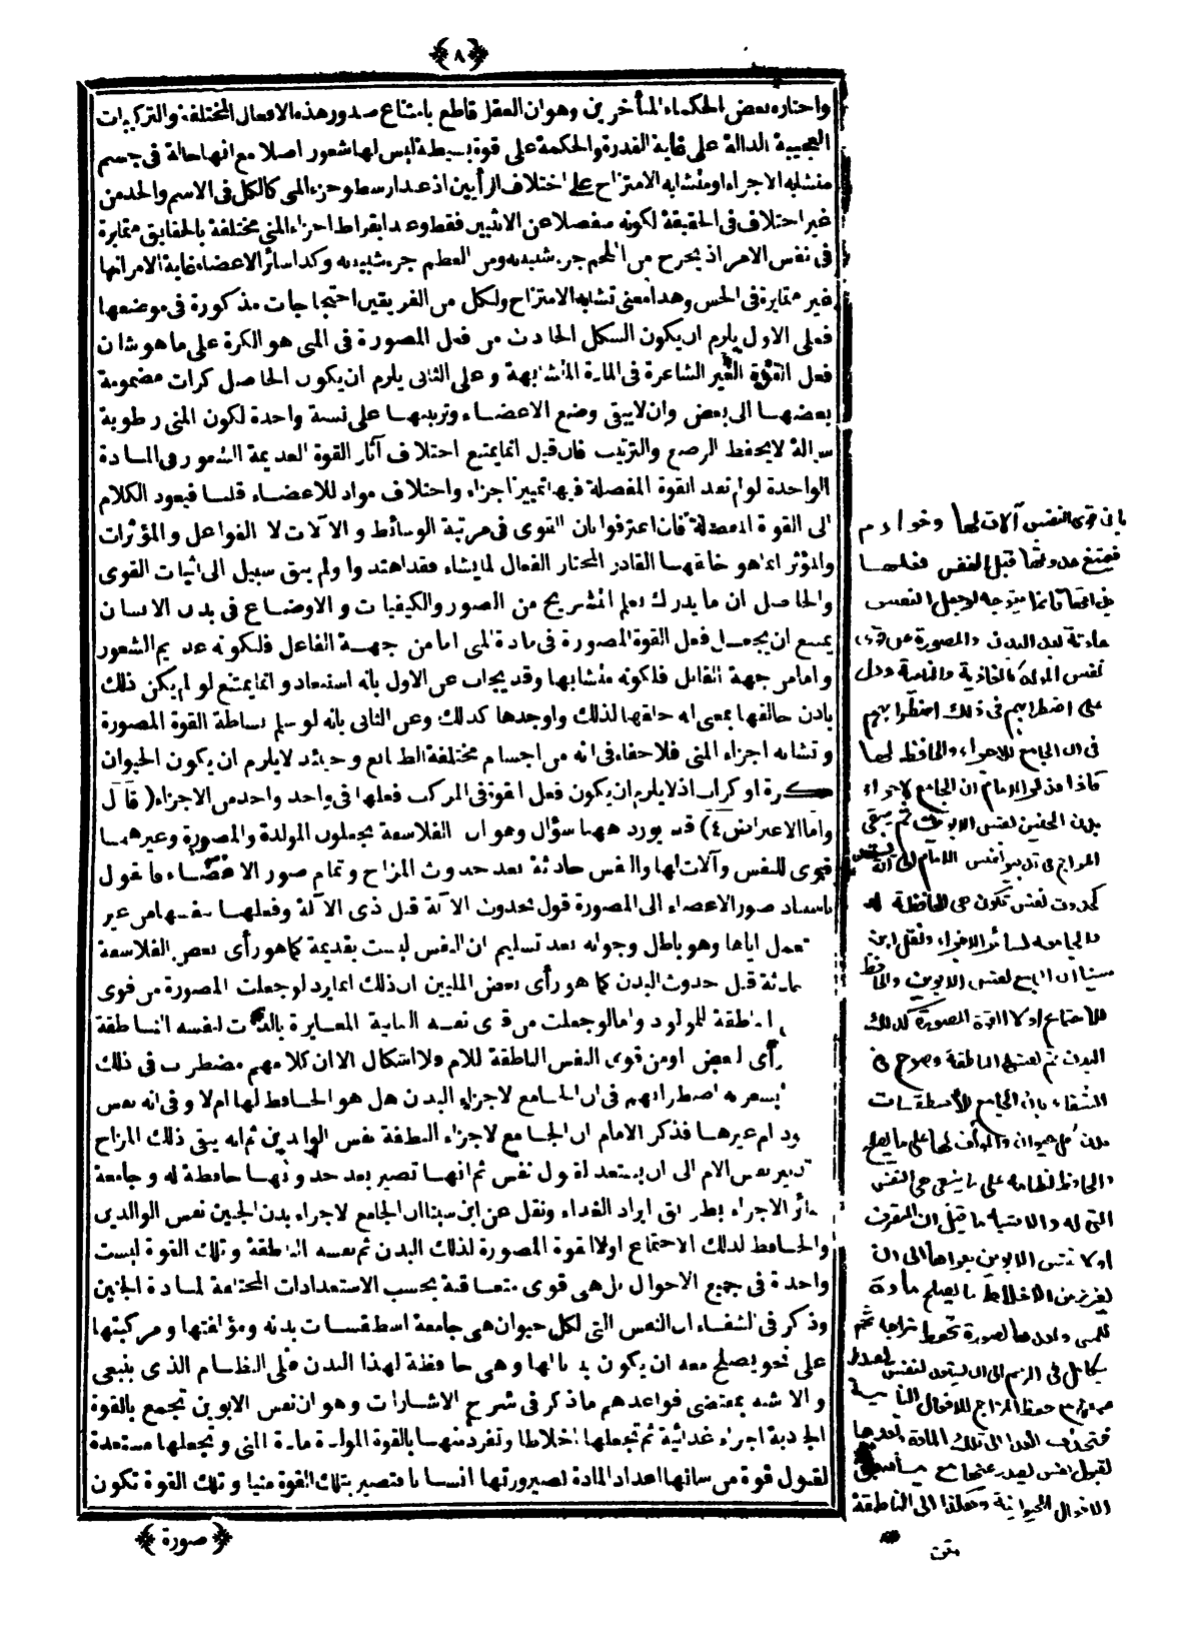 ﴿ ٨ ﴾
واختاره بعض الحكماء المتأخرين وهو ان العقل قاطع بامتناع صدور هذه الافعال المختلفة والتركيبات
العجيبة الدالة على غاية القدرة والحكمة على قوة بسيطة ليس لها شعور اصلا مع انها حالة فى جسم
متشابه الاجزاء او متشابه الامتزاج على اختلاف الرأيين اذ عند ارسطو جزء المنى كالكل فى الاسم والحد من
غير اختلاف فى الحقيقة لكونه منفصلا عن الانثيين فقط وعند ابقراط اجزاء المنى مختلفة بالحقايق متمايزة
فى نفس الامر اذ يخرج من اللحم جزء شبيه به ومن العظم جزء شبيه به وكذا سائر الاعضاء غاية الامر انها
غير متمايزة فى الحس وهذا معنى تشابه الامتزاج ولكل من الفريقين احتجاجات مذكورة فى موضعها
فعلى الاول يلزم ان يكون الشكل الحادث من فعل المصورة فى المنى هو الكرة على ما هو شان
فعل القوة الغير الشاعرة فى المادة المتشابهة وعلى الثانى يلزم ان يكون الحاصل كرات مضمومة
بعضها الى بعض وان لا يبقى وضع الاعضاء وترتيبها على نسبة واحدة لكون المنى رطوبة
سيالة لا يحفظ الوضع والترتيب فان قيل انما يمتنع اختلاف آثار القوة العديمة الشعور فى المادة
الواحدة لو لم تعد القوة المفصلة فيها تمييز اجزاء واختلاف مواد للاعضاء قلنا فيعود الكلام
الى القوة المفصلة فان اعترفوا بان القوى فى مرتبة الوسائط والآلات لا الفواعل والمؤثرات
والمؤثر انما هو خالقها القادر المختار الفعال لما يشاء فقد اهتدوا ولم يبق سبيل الى اثبات القوى
والحاصل ان ما يدرك بعلم التشريح من الصور والكيفيات والاوضاع فى بدن الانسان
يمتنع ان يجعل فعل القوة المصورة فى مادة المنى اما من جهة الفاعل فلكونه عديم الشعور
واما من جهة القابل فلكونه متشابها وقد يجاب عن الاول بانه استبعاد وانما يمتنع لو لم يكن ذلك
باذن خالقها بمعنى انه خلقها لذلك واوجدها كذلك وعن الثانى بانه لو سلم بساطة القوة المصورة
وتشابه اجزاء المنى فلا خفاء فى انه من اجسام مختلفة الطبائع وحينئذ لا يلزم ان يكون الحيوان
كرة او كرات اذ لا يلزم ان يكون فعل القوة فى المركب فعلها فى واحد واحد من الاجزاء ( قال
واما الاعتراض ٤) قد يورد ههنا سؤال وهو ان الفلاسفة يجعلون المولدة والمصورة وغيرهما
قوى للنفس وآلات لها والنفس حادثة بعد حدوث المزاج وتمام صور الاعضاء فالقول
باستناد صور الاعضاء الى المصورة قول بحدوث الآلة قبل ذى الآلة وفعلها بنفسها من غير
تعمل اياها وهو باطل وجوابه بعد تسليم ان النفس ليست بقديمة كما هو رأى بعض الفلاسفة
حادثة قبل حدوث البدن كما هو رأى بعض المليين ان ذلك انما يرد لو جعلت المصورة من قوى
الناطقة للمولود واما لو جعلت من قوى نفسه النباتية المغايرة بالذات لنفسه الناطقة
رأى لبعض او من قوى النفس الناطقة للام فلا اشكال الا ان كلامهم مضطرب فى ذلك
يشعر به اضطرابهم فى ان الجامع لاجزاء البدن هل هو الحافظ لها ام لا وفى انه نفس
ود ام غيرها فذكر الامام ان الجامع لاجزاء النطفة نفس الوالدين ثم انه يبقى ذلك المزاج
تدبير نفس الام الى ان يستعد لقبول نفس ثم انها تصير بعد حدوثها حافظة له وجامعة
سائر الاجزاء بطريق ايراد الغذاء ونقل عن ابن سينا ان الجامع لاجزاء بدن الجنين نفس الوالدين
والحافظ لذلك الاجتماع اولا القوة المصورة لذلك البدن ثم نفسه الناطقة وتلك القوة ليست
واحدة فى جميع الاحوال بل هى قوى متعاقبة بحسب الاستعدادات المختلفة لمادة الجنين
وذكر فى الشفاء ان النفس التى لكل حيوان هى جامعة اسطقسات بدنه ومؤلفتها ومركبتها
على نحو يصلح معه ان يكون بدنا لها وهى حافظة لهذا البدن على النظام الذى ينبغى
والاشبه بمقتضى قواعدهم ما ذكر فى شرح الاشارات وهو ان نفس الابوين تجمع بالقوة
الجاذبة اجزاء غذائية ثم تجعلها اخلاطا وتفرد منها بالقوة المولدة مادة المنى وتجعلها مستعدة
لقبول قوة من شانها اعداد المادة لصيرورتها انسانا فتصير بتلك القوة منيا وتلك القوة تكون
﴿ صورة ﴾
باقى قوى النفس آلات لها وخوادم
فيمتنع حدوثها قبل النفس وفعلها
حادثة بعد البدن والمصورة من قوى
نفس المولد كالغاذية والنامية ودل
على اضطرابهم فى ذلك اضطرابهم
فى ان الجامع للاجزاء والحافظ لها
ماذا من قول الامام ان الجامع لاجزاء
بدن الجنين نفس الابوين ثم يبقى
المزاج فى تدبير نفس الام الى ان يستعد
لحدوث نفس تكون هى الحافظة له
والجامعة لسائر الاجزاء ونقل ابن
سينا ان الجامع نفس الابوين والحافظ
للاجتماع اولا القوة المصورة لذلك
البدن ثم نفسه الناطقة وصرح فى
الشفاء بان الجامع للاسطقسات
بدن كل حيوان والمؤلف لها على ما يصلح
والحافظ لنظامه على ما ينبغى هى النفس
التى له والاشبه ما قيل ان المتصرف
اولا نفس الابوين بقواها الى ان
يفرز من الاخلاط ما يصلح مادة
للمنى
يتكامل فى الرحم الى ان يستعد لنفس
فتجذب الغذاء الى تلك المادة
لقبول نفس يصدر عنها مع ما سبق
الافعال الحيوانية وهكذا الى الناطقة
متن